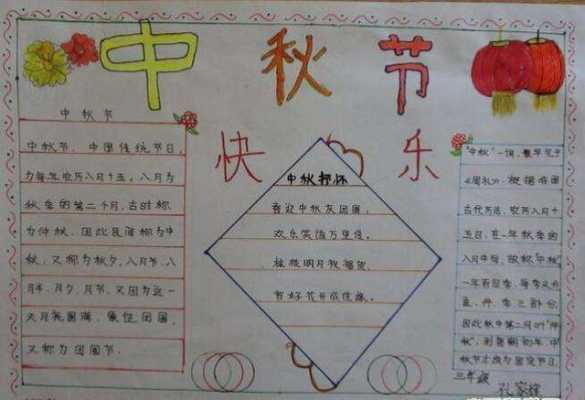 中秋节
快乐
中秋节
中秋节，中国传统节日，
为每年农历八月十五，八月为
秋季的第二个月，古时称
为仲秋，因此民间称为中
秋，又称为秋夕，八月节，八
月半，月夕，月节，又因为这一
天月亮圆满，象征团圆，
又称为团圆节.
中秋抒怀
喜迎中秋友团圆，
欢乐笑语万里传。
明月我
花
"中秋"一词，最早见于
《周礼》.根据我国
古代历法，农历八月十
五日，在一年秋季的
八月中旬，故称"中秋"
一年有四季，每季又分
孟，仲，季三部分，
因此秋中第二月叫"仲
秋"，到唐朝初年，中
秋节才成为固定节日.
三年级
孔家